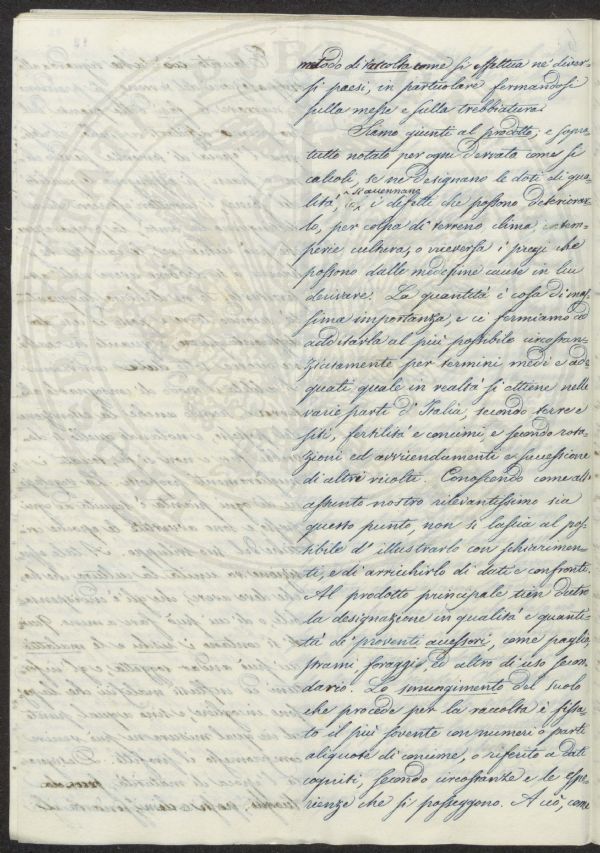 metodo di raccolta come si effettua ne' diver-
si paesi, in particolare fermandosi
sulla messe e sulla trebbiatura.
Siamo giunti al prodotto, e sopra-
tutto notato per ogni derrata come si
calcoli, se ne designano le doti di qua-
lità, i difetti che possono deteriorar-
lo, per colpa di terreno clima intem-
perie cultura, o viceversa i pregi che
possono dalle medesime cause in lui
derivare. La quantità è cosa di mas-
sima importanza, e ci fermiamo ad
additarla al più possibile circostan-
ziatamente per termini medi e ade-
quati quale in realtà si ottiene nelle
varie parti d'Italia, secondo terre e
siti, fertilità e concimi, e secondo rota-
zioni ed avvicendamenti e successione
di altri ricolti. Conoscendo come all'
assunto nostro rilevantissimo sia
questo punto, non si lascia al pos-
sibile d'illustrarlo con schiarimen-
ti, e di arricchirlo di dati e confronti.
Al prodotto principale tien dietro
la designazione in qualità e quanti-
tà de' proventi accessori, come paglie
strami foraggio ed altro di uso secon-
dario. Lo smungimento del suolo
che procede per la raccolta è fissa-
to il più sovente con numeri o parti
aliquote di concime, o riferito a dati
cogniti, secondo circostanze e le espe-
rienze che si posseggono. A ciò, come